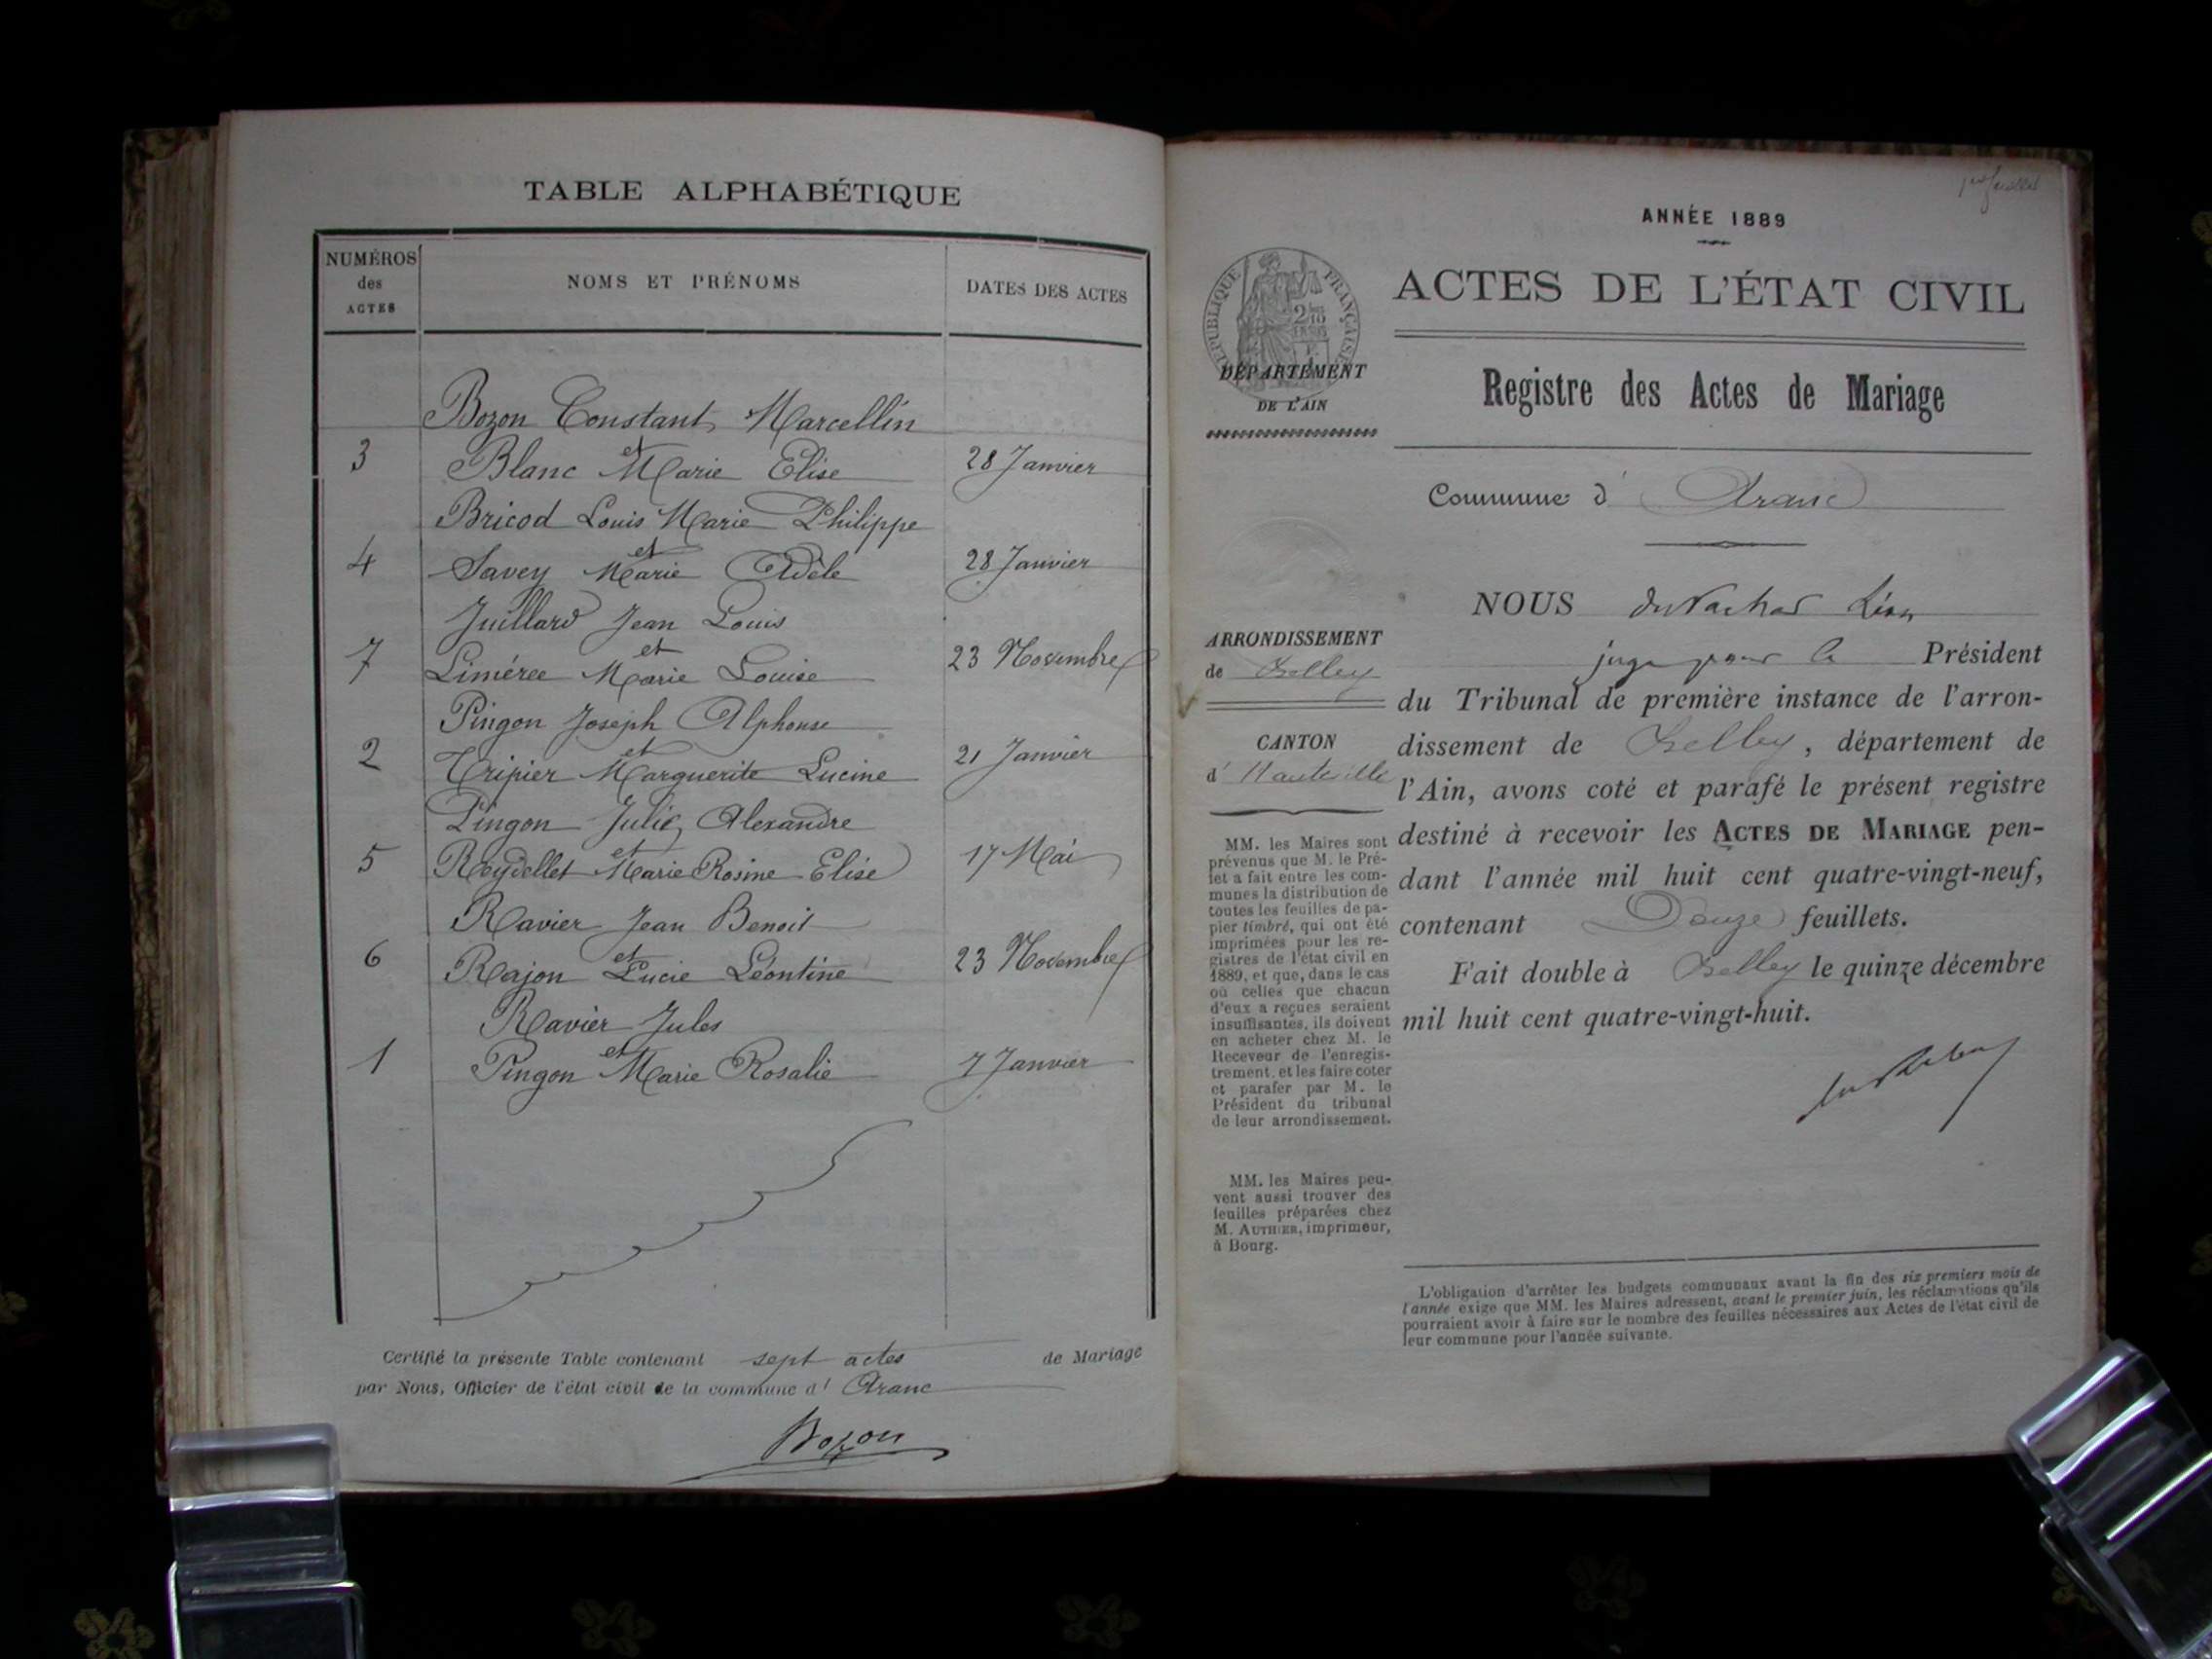 TABLE ALPHABÉTIQUE
NUMÉROS
des
ACTES
NOMS ET PRÉNOMS
DATES DES ACTES
Bozon Constant Marcellin
et
3 Blanc Marie Elise 28 Janvier
Bricod Louis Marie Philippe
et
4 Savey Marie Adèle 28 Janvier
Juillard Jean Louis
et
7 Marie Louise 23 Novembre
Pingon Joseph Alphonse
et
2 Tripier Marguerite Lucine 21 Janvier
Pingon Alexandre
et
5 Reydellet Marie Rosine Elise 17 Mai
Ravier Jean Benoit
et
6 Rajon Lucie Léontine 23 Novembre
Ravier Jules
et
1 Pingon Marie Rosalie 7 Janvier
Certifié la présente Table contenant sept actes de Mariage
par Nous, Officier de l'état civil de la commune d' Aranc
Bozon
1er feuillet
ANNÉE 1889
ACTES DE L'ÉTAT CIVIL
RÉPUBLIQUE FRANÇAISE
DÉPARTEMENT
DE L'AIN
Registre des Actes de Mariage
Commune d' Aranc
ARRONDISSEMENT
de Belley
CANTON
d' Hauteville
MM. les Maires sont
prévenus que M. le Pré-
fet a fait entre les com-
munes la distribution de
toutes les feuilles de pa-
pier timbré, qui ont été
imprimées pour les re-
gistres de l'état civil en
1889, et que, dans le cas
où celles que chacun
d'eux a reçues seraient
insuffisantes, ils doivent
en acheter chez M. le
Receveur de l'enregis-
trement, et les faire coter
et parafer par M. le
Président du tribunal
de leur arrondissement.
MM. les Maires peu-
vent aussi trouver des
feuilles préparées chez
M. AUTHIER, imprimeur,
à Bourg.
NOUS Léon
juge pour le Président
du Tribunal de première instance de l'arron-
dissement de Belley, département de
l'Ain, avons coté et parafé le présent registre
destiné à recevoir les ACTES DE MARIAGE pen-
dant l'année mil huit cent quatre-vingt-neuf,
contenant Douze feuillets.
Fait double à Belley le quinze décembre
mil huit cent quatre-vingt-huit.
L'obligation d'arrêter les budgets communaux avant la fin des six premiers mois de
l'année exige que MM. les Maires adressent, avant le premier juin, les réclamations qu'ils
pourraient avoir à faire sur le nombre des feuilles nécessaires aux Actes de l'état civil de
leur commune pour l'année suivante.